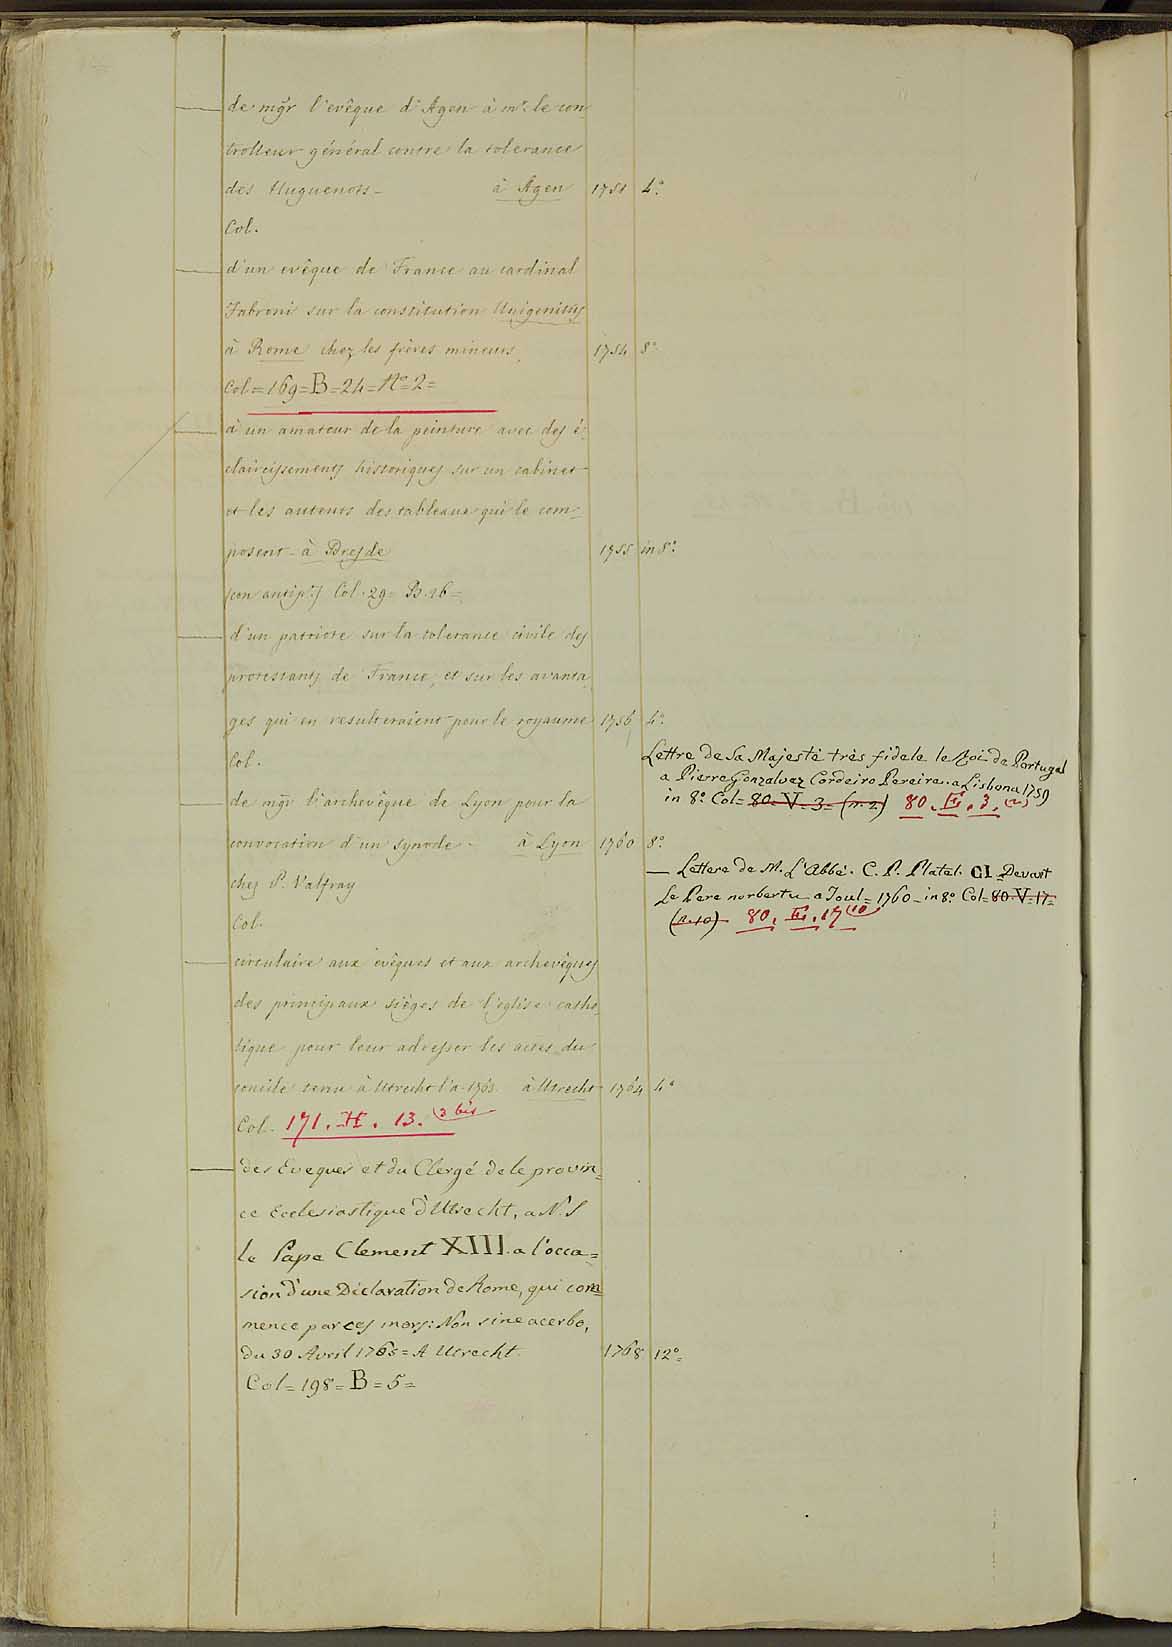 — de mgr l'evêque d'Agen à mr. le con-
trolleur général contre la tolerance
des Huguenots - à Agen 1751 4°.
Col.
— d'un evêque de France au cardinal
Fabroni sur la constitution Unigenitus
à Rome chez les frères mineurs, 1754 8°
Col = 169 = B = 24 = N° = 2 =
— à un amateur de la peinture avec des é-
claircissements historiques sur un cabinet
et les auteurs des tableaux qui le com-
posent - à Dresde 1755 in 8°.
Col. 29 = B. 16 =
— d'un patriote sur la tolerance civile des
protestants de France, et sur les avanta-
ges qui en resulteraient pour le royaume 1756 4°.
Col.
— de mgr l'archevêque de Lyon pour la
convocation d'un synode - à Lyon 1760 8°.
chez P. Valfray
Col.
— circulaire aux evêques et aux archevêques
des principaux sièges de l'eglise catho-
lique pour leur adresser les actes du
concile tenu à Utrecht l'a. 1763. à Utrecht 1764 4°
Col. 171. H. 13. (3 bis
— des Eveques et du Clergé de le provin=
ce Ecclesiastique d'Utrecht, a N. S
le Pape Clement XIII. a l'occa=
sion d'une Déclaration de Rome, qui com=
mence par ces mots: Non sine acerbo,
du 30 Avril 1765 = A Utrecht. 1768 12° =
Col = 198 = B = 5 =
Lettre de Sa Majesté très fidele le Roi de Portugal
a Pierre Gonzalvez Cordeiro Pereira. a Lisbona 1759
in 8°. Col = 80. V. 3 = (n. 2) 80. E. 3. (2)
— Lettere de M. L'Abbé. C. P. Platel. CI = Devant
Le Pere norbert = a Toul = 1760 - in 8° Col = 80. V. 17 =
(n. 10) 80. E. 17 (10